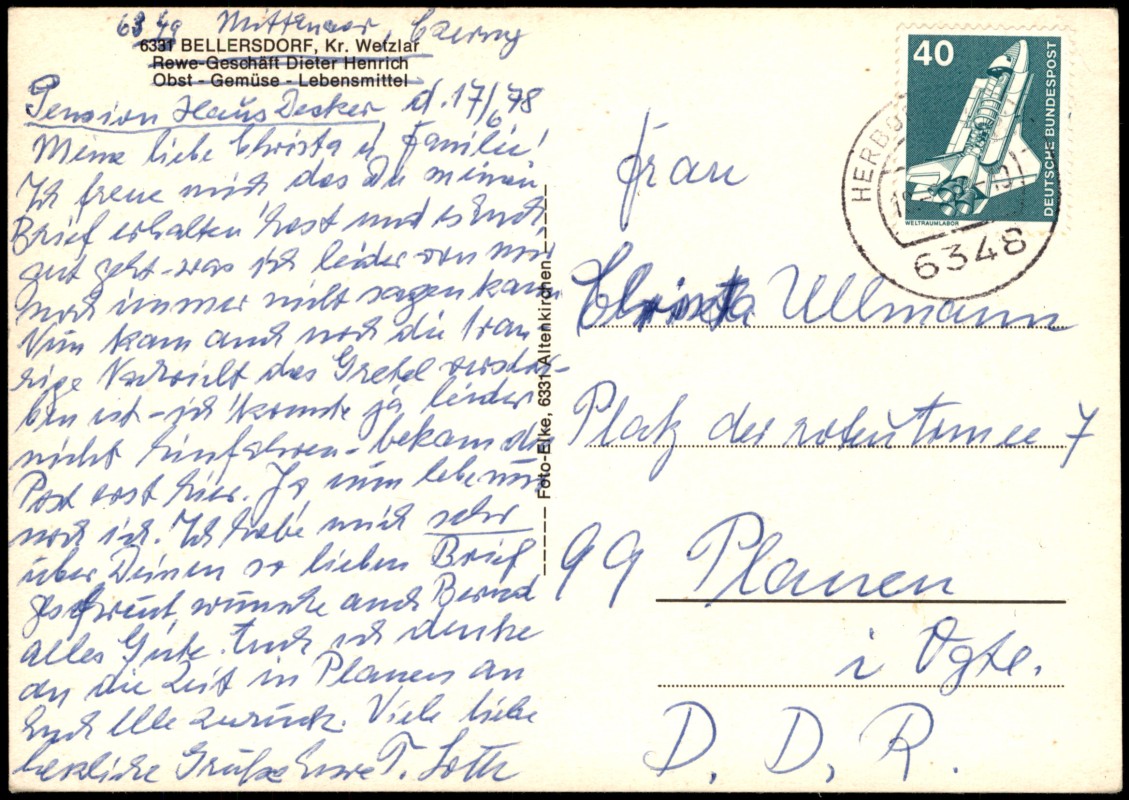 6349 Mittenaar,
6331 BELLERSDORF, Kr. Wetzlar
Rewe-Geschäft Dieter Henrich
Obst - Gemüse - Lebensmittel
Pension Haus Decker, d. 17/6 78
Meine liebe Christa u Familie!
Ich freue mich das Du meinen
Brief erhalten hast und es Euch
gut geht - was ich leider von mir
noch immer nicht sagen kann
Nun kam auch noch die trau-
rige Nachricht das Gretel verstor-
ben ist - ich konnte ja leider
nicht hinfahren - bekam die
Post erst hier. Ja nun lebe nur
noch ich. Ich habe mich sehr
über Deinen so lieben Brief
gefreut, wünsche auch Bernd
alles Gute. Auch ich denke
an die Zeit in Plauen an
Euch Alle zurück. Viele liebe
herzliche Grüße Eure T. Loth
Foto-Elke, 6331 Altenkirchen
40
DEUTSCHE BUNDESPOST
WELTRAUMLABOR
HERBO
6348
Frau
Christa Ullmann
Platz der roten Armee 7
99 Plauen
i Vgtl.
D. D. R.